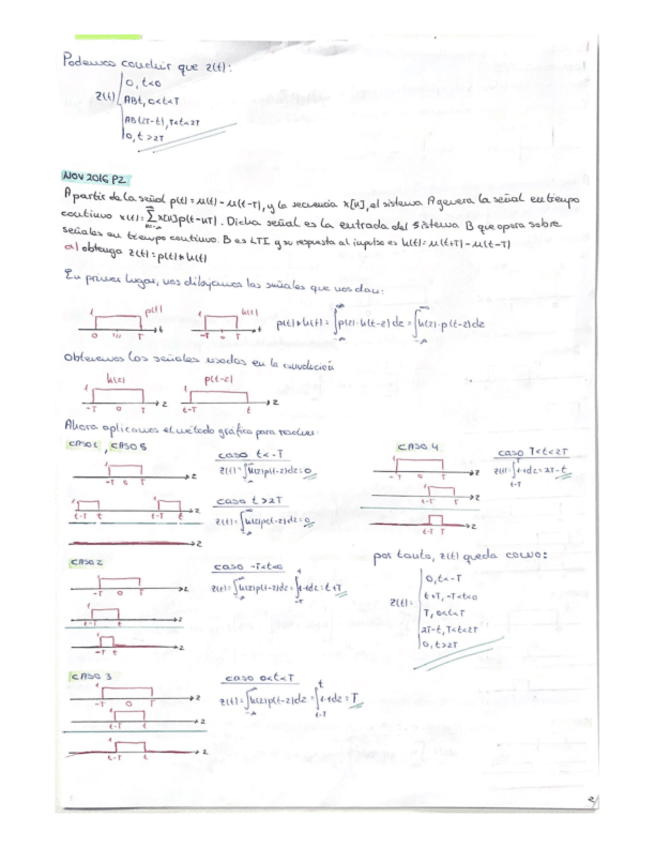 Podemos concluir que z(t):
z(t) { 0, t<0
ABt, 0<t<T
AB(2T-t), T<t<2T
0, t>2T
NOV 2016 P2
A partir de la señal p(t)=u(t)-u(t-T), y la secuencia x[n], el sistema A genera la señal en tiempo
continuo x(t)=∑x[n]p(t-nT). Dicha señal es la entrada del sistema B que opera sobre
señales en tiempo continuo. B es LTI y su respuesta al impulso es h(t)=u(t+T)-u(t-T)
a) obtenga z(t)=p(t)*h(t)
En primer lugar, nos dibujamos las señales que nos dan:
1 p(t) 0 T t
1 h(t) -T 0 T t
p(t)*h(t)=∫p(z)·h(t-z)dz=∫h(z)·p(t-z)dz
Obtenemos las señales usadas en la convolución
1 h(z) -T 0 T z
1 p(t-z) t-T t z
Ahora aplicamos el método gráfico para resolver:
CASO 1, CASO 5
1 -T 0 T z
1 t-T t t-T t z
z
caso t<-T
z(t)=∫h(z)p(t-z)dz=0
caso t>2T
z(t)=∫h(z)p(t-z)dz=0
CASO 4
1 -T 0 T z
t-T t z
t-T T z
caso T<t<2T
z(t)=∫1·1dz=2T-t
t-T
CASO 2
1 -T 0 T z
t-T t z
-T t z
caso -T<t<0
z(t)=∫h(z)p(t-z)dz=∫1·1dz=t+T
-T
por tanto, z(t) queda como:
z(t)= { 0, t<-T
t+T, -T<t<0
T, 0<t<T
2T-t, T<t<2T
0, t>2T
CASO 3
1 -T 0 T z
1 t-T t z
1 t-T t z
caso 0<t<T
z(t)=∫h(z)p(t-z)dz=∫1·1dz=T
t-T